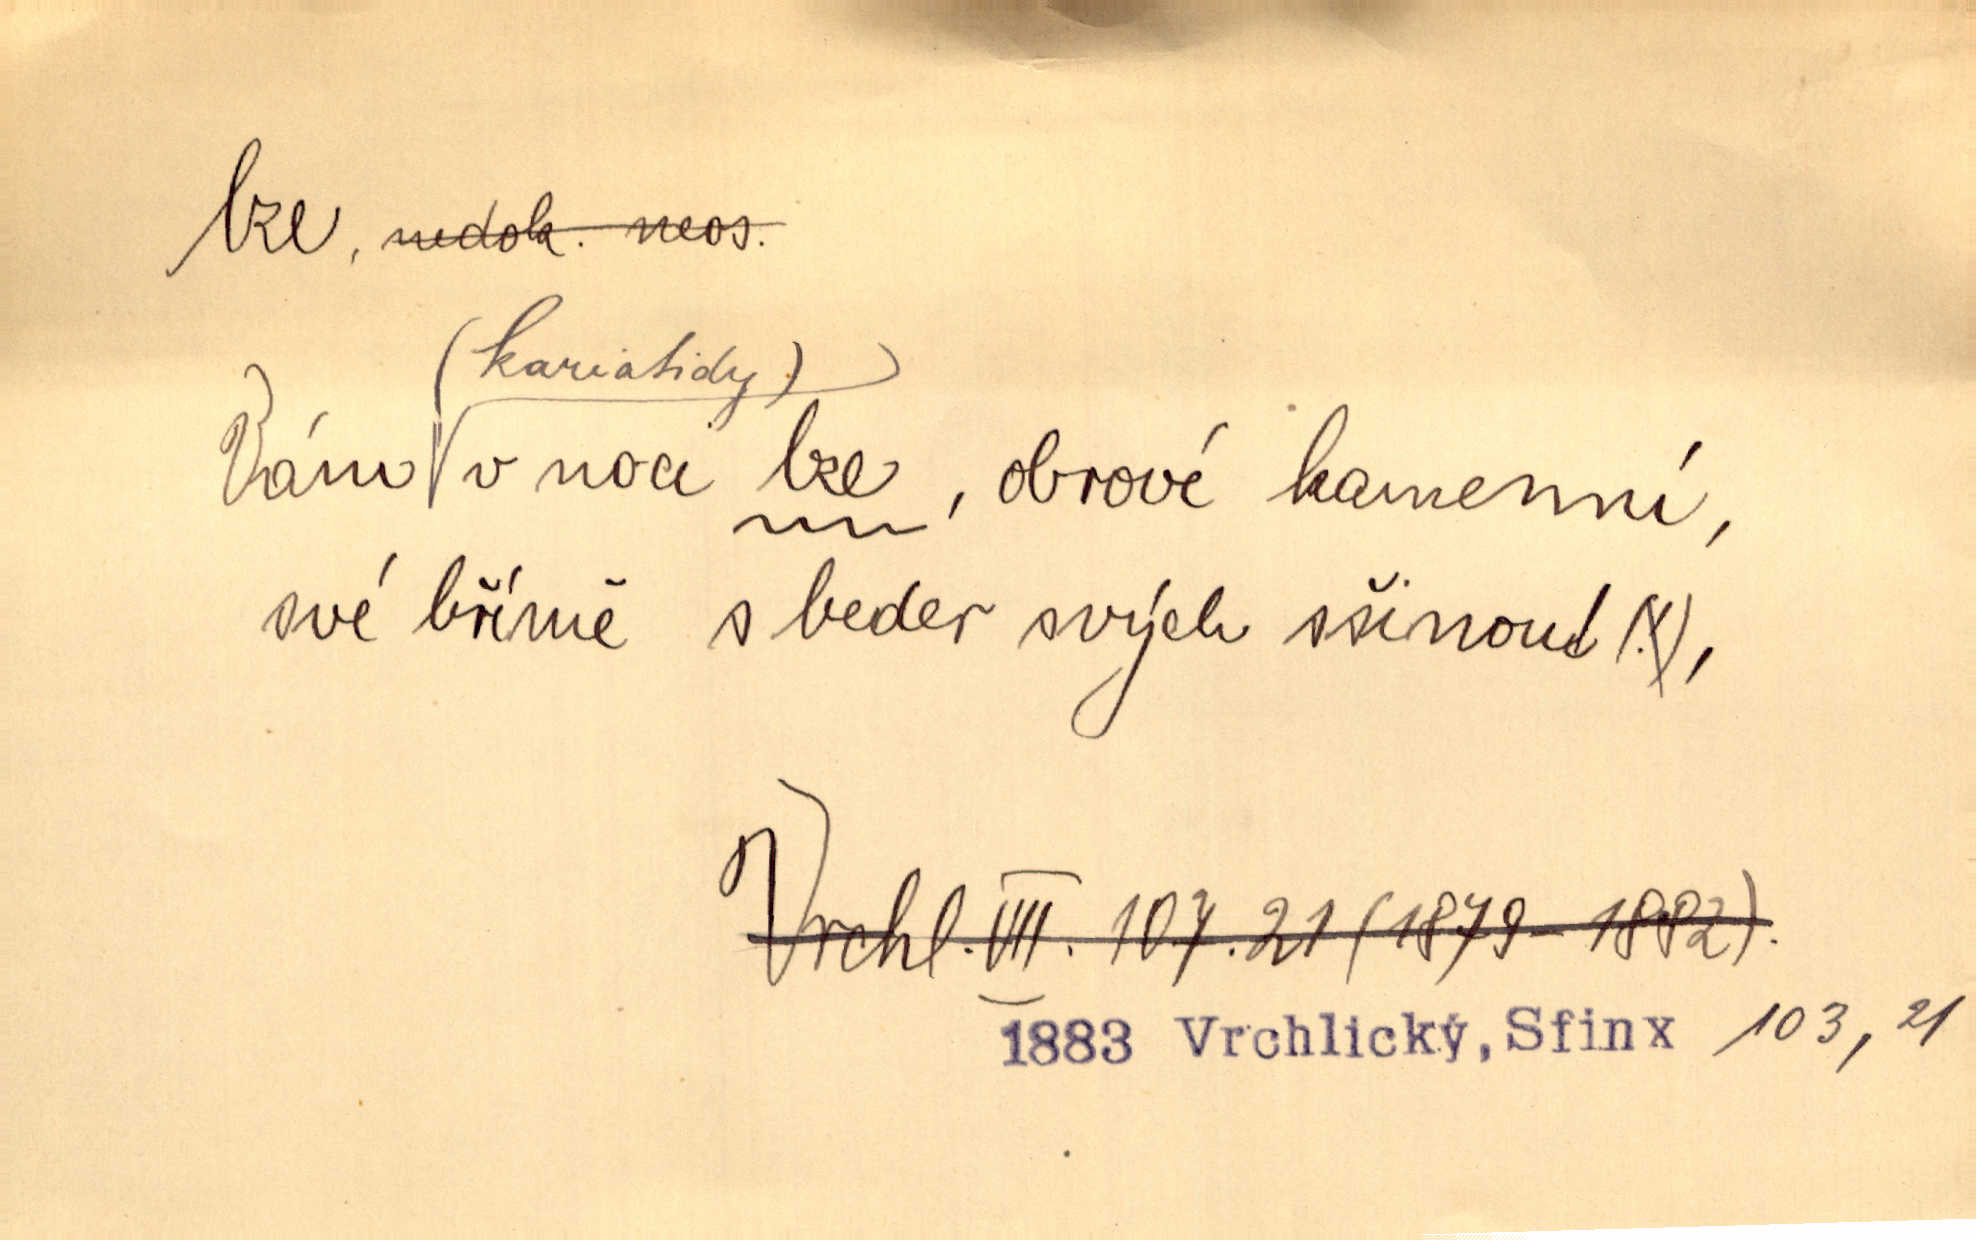 lze, nedok. neos.
(kariatidy)
Vám v noci lze, obrové kamenní,
své břímě s beder svých sšinout (!),
Vrchl. VIII. 107. 21 (1879–1882).
1883 Vrchlický, Sfinx 103, 21